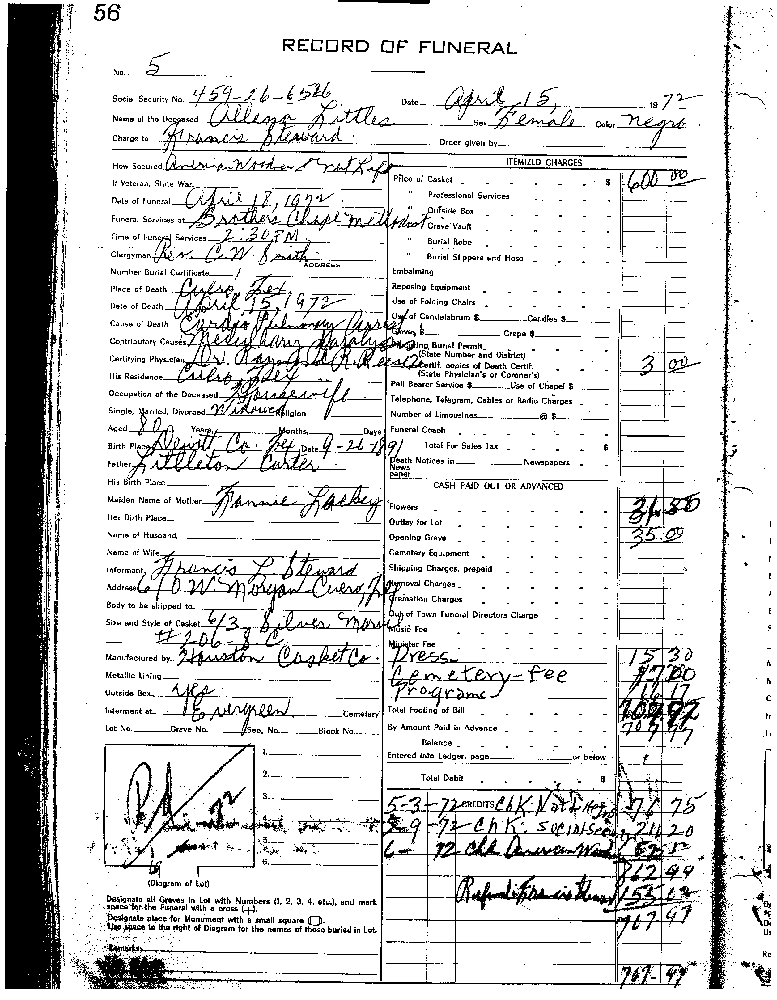 56
RECORD OF FUNERAL
No. 5
Social Security No. 459-26-6526 Date April 15, 1972
Name of the Deceased Allega Littles Sex Female Color negro
Charge to Francis Steward Order given by
How Secured American Woodmen & Nat Life
If Veteran, State War
Date of Funeral April 18, 1972
Funeral Services at Brothers Chapel Methodist
Time of Funeral Services 2:30 P.M.
Clergyman Rev. C. W. Smith ADDRESS
Number Burial Certificate 1
Place of Death Cuero, Tex
Date of Death April 15, 1972
Cause of Death Cardio Pulmonary Arrest
Contributory Causes
Certifying Physician Dr.
His Residence Cuero Tex
Occupation of the Deceased Housewife
Single, Married, Divorced Widowed Religion
Aged 80 Years Months Days
Birth Place Dewitt Co. Tex Date 9-26-1891
Father Littleton Carter
His Birth Place
Maiden Name of Mother Fannie Lackey
Her Birth Place
Name of Husband
Name of Wife
Informant Francis L. Steward
Address 610 W. Morgan Cuero, Tex
Body to be shipped to
Size and Style of Casket 6/3 Silver
# 206-8 C
Manufactured by Houston Casket Co.
Metallic Lining
Outside Box yes
Interment at Evergreen Cemetery
Lot No. Grave No. Sec. No. Block No.
1.
2.
3.
4.
5.
6.
(Diagram of Lot)
Designate all Graves in Lot with Numbers (1, 2, 3, 4, etc.), and mark
space for the Funeral with a cross (+).
Designate place for Monument with a small square (□).
Use space to the right of Diagram for the names of those buried in Lot.
Remarks:
ITEMIZED CHARGES
Price of Casket $ 600 00
" Professional Services
" Outside Box
" Grave Vault
" Burial Robe
" Burial Slippers and Hose
Embalming
Reposing Equipment
Use of Folding Chairs
Use of Candelabrum $ Candles $
Gloves $ Crepe $
Burial Permit
(State Number and District)
Certif. copies of Death Certif. 3 00
(State Physician's or Coroner's)
Pall Bearer Service $ Use of Chapel $
Telephone, Telegram, Cables or Radio Charges
Number of Limousines @ $
Funeral Coach
Total For Sales Tax $
Death Notices in Newspapers
News
paper
CASH PAID OUT OR ADVANCED
Flowers
Outlay for Lot
Opening Grave 35.00
Cemetery Equipment
Shipping Charges, prepaid
Removal Charges
Cremation Charges
Out of Town Funeral Directors Charge
Music Fee
Minister Fee
Press 15 30
Cemetery-fee
Programs 16 17
Total Footing of Bill
By Amount Paid in Advance
Balance
Entered into Ledger, page or below
Total Debit $
5-3-72 CREDITS Chk Nat Life 76 75
5-9-72 Chk. Social Sec. 211 20
6- 72 Chk American Wood
Refund Francis
767 47
767-47